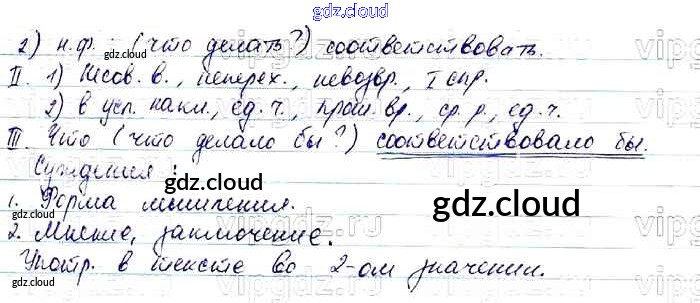 gdz.cloud
2) н.ф. - (что делать?) соответствовать.
II. 1) Несов. в., неперех., невозвр., I спр.
2) в усл. накл., ед. ч., прош. вр., ср. р., ед. ч.
III. Что (что делало бы?) соответствовало бы.
Суждения:
1. Форма мышления.
2. Мнение, заключение.
Употр. в тексте во 2-ом значении.
gdz.cloud
gdz.cloud
gdz.cloud
gdz.cloud
gdz.cloud